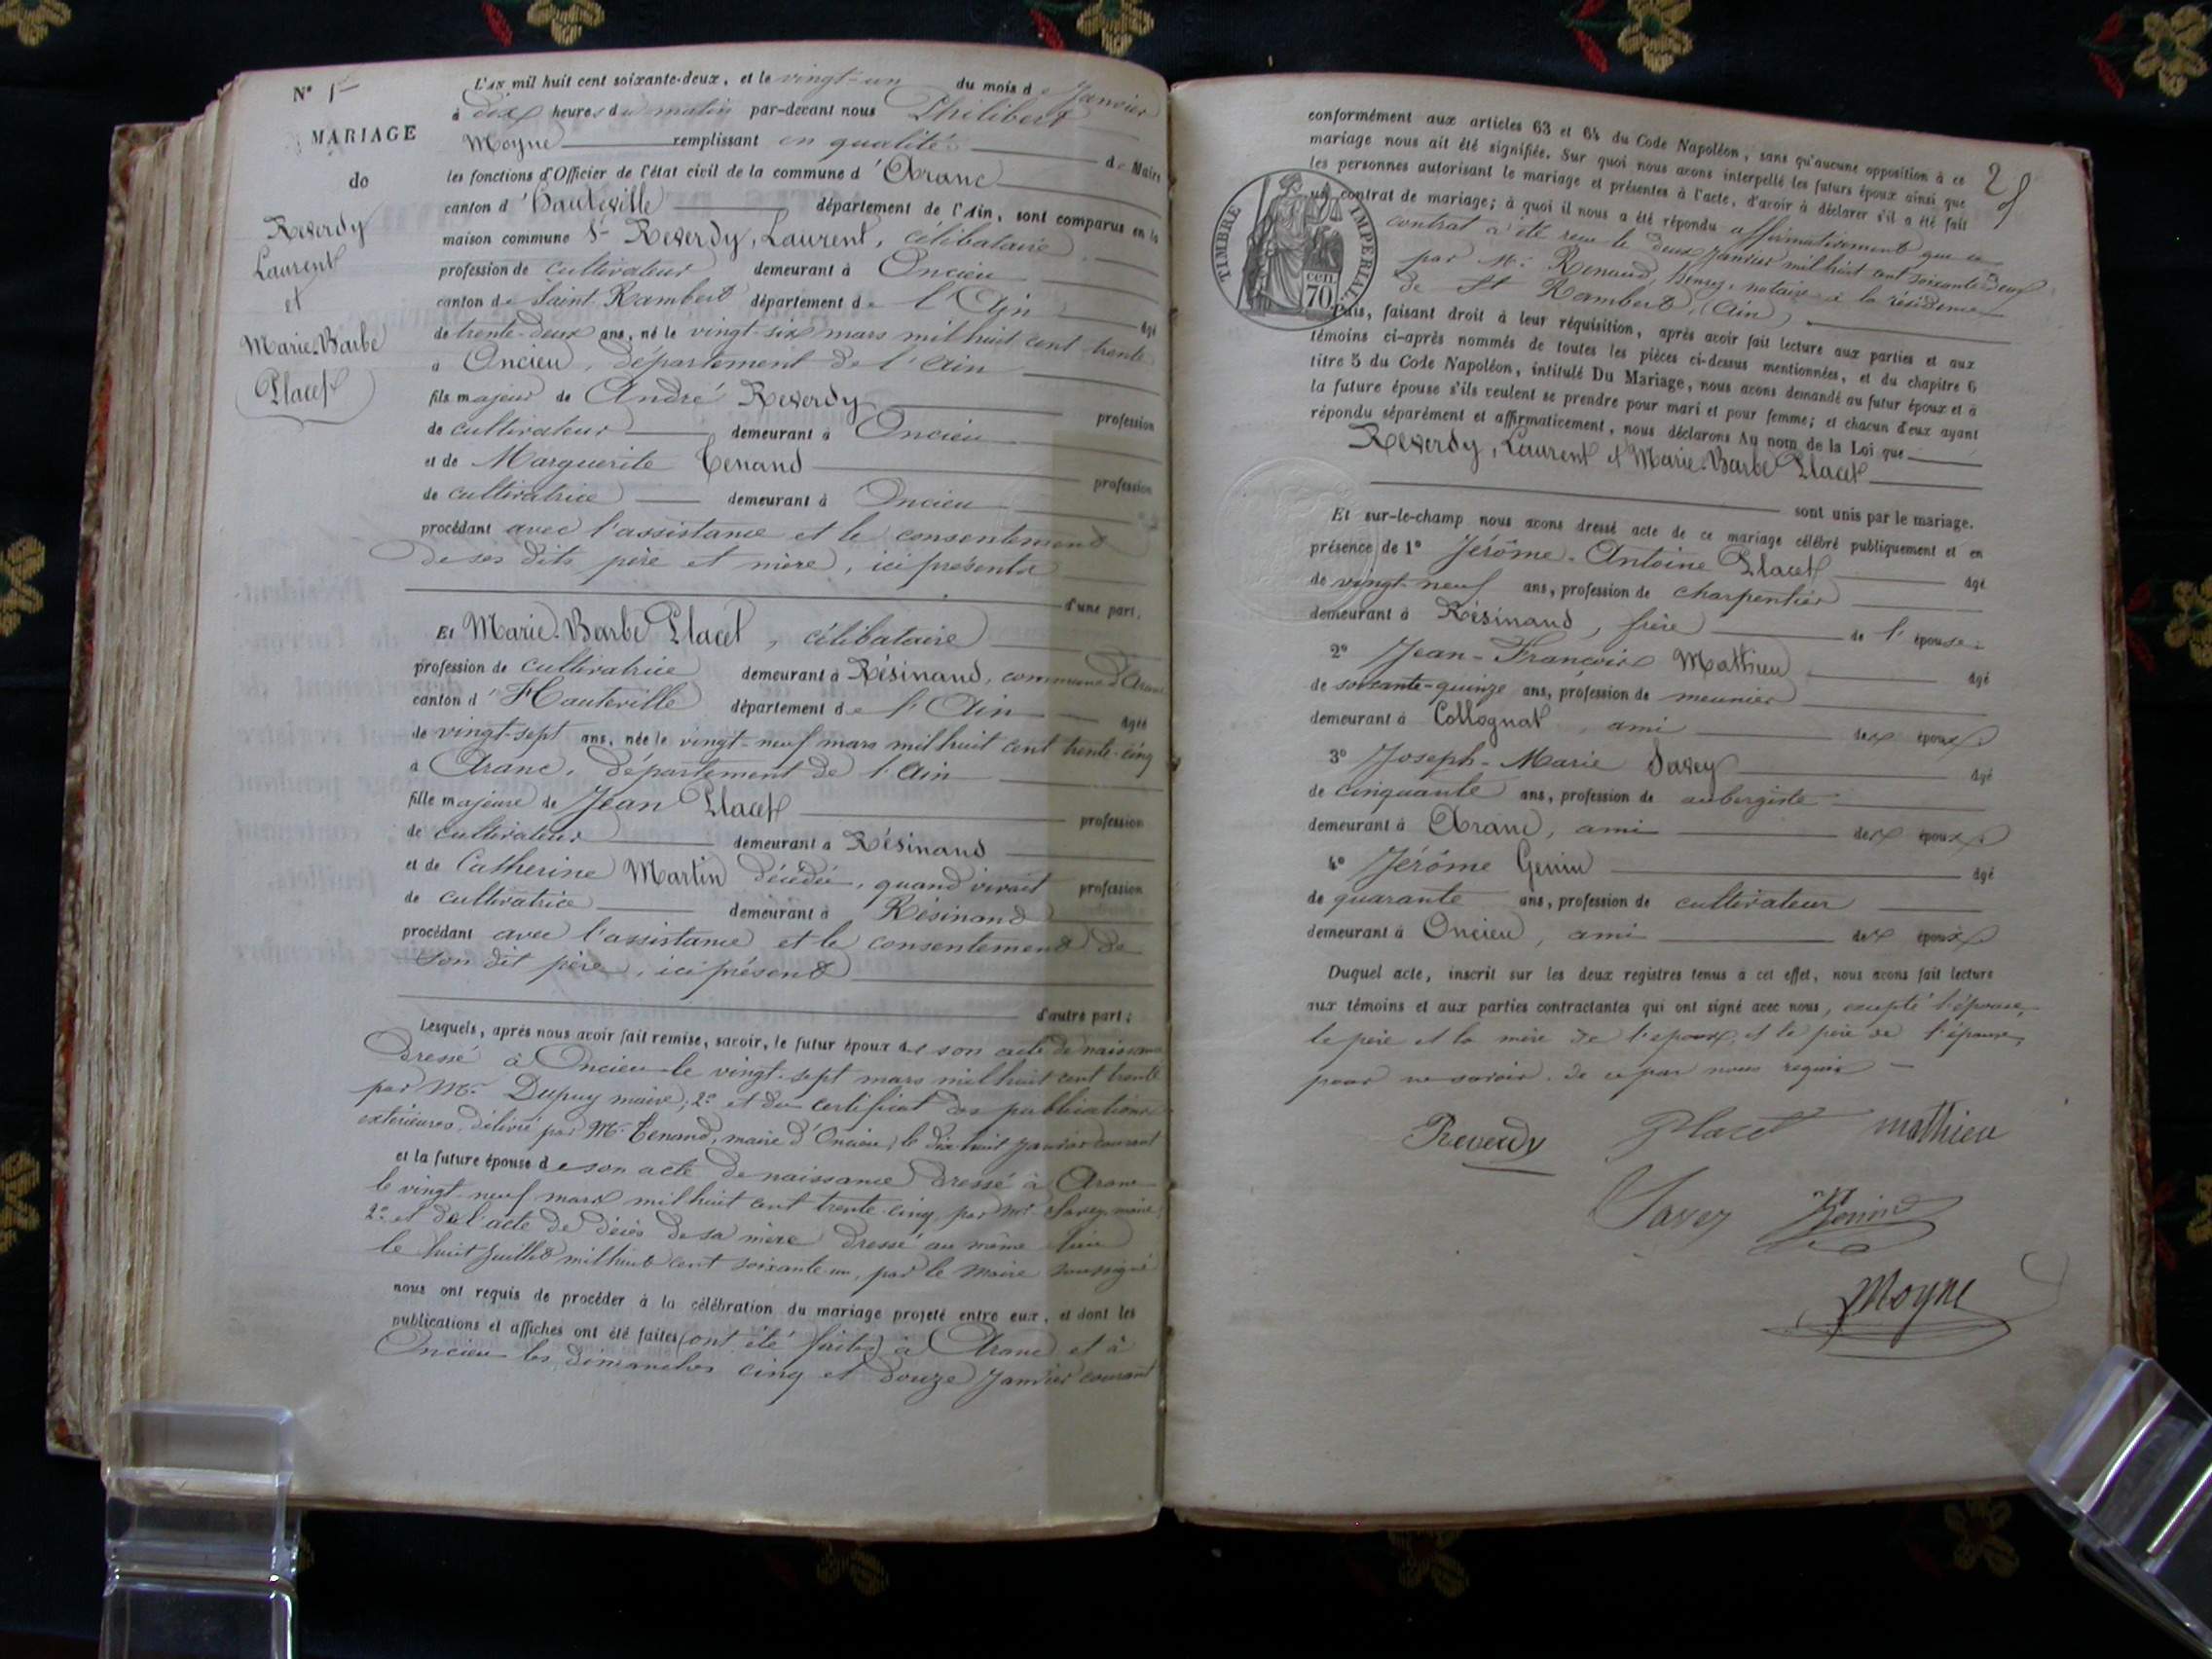 N° 1er
MARIAGE
de
Reverdy
Laurent
et
Marie-Barbe
Placet
L'AN mil huit cent soixante-deux, et le vingt-un du mois de Janvier
à dix heures du matin par-devant nous Philibert
Moyne remplissant en qualité de Maire
les fonctions d'Officier de l'état civil de la commune d'Aranc
canton d'Hauteville département de l'Ain, sont comparus en la
maison commune Sr Reverdy, Laurent, célibataire
profession de cultivateur demeurant à Oncieu
canton de Saint Rambert département de l'Ain âgé
de trente-deux ans, né le vingt-six mars mil huit cent trente
à Oncieu, département de l'Ain
fils majeur de André Reverdy profession
de cultivateur demeurant à Oncieu
et de Marguerite Tenand profession
de cultivatrice demeurant à Oncieu
procédant avec l'assistance et le consentement
de ses dits père et mère, ici présents
d'une part.
Et Marie-Barbe Placet, célibataire
profession de cultivatrice demeurant à Résinand, commune d'Aranc
canton d'Hauteville département de l'Ain âgée
de vingt-sept ans, née le vingt-neuf mars mil huit cent trente-cinq
à Aranc, département de l'Ain
fille majeure de Jean Placet profession
de cultivateur demeurant à Résinand
et de Catherine Martin décédée, quand vivait profession
de cultivatrice demeurant à Résinand
procédant avec l'assistance et le consentement de
son dit père, ici présent
d'autre part;
Lesquels, après nous avoir fait remise, savoir, le futur époux de son acte de naissance
dressé à Oncieu le vingt-sept mars mil huit cent trente
par Mr Dupuy maire; 2° et du certificat des publications
extérieures, délivré par Mr Tenand, maire d'Oncieu, le dix-huit janvier courant
et la future épouse de son acte de naissance dressé à Aranc
le vingt-neuf mars mil huit cent trente-cinq, par Mr Savey maire;
2° et de l'acte de décès de sa mère dressé au même lieu
le huit juillet mil huit cent soixante-un, par le maire soussigné
nous ont requis de procéder à la célébration du mariage projeté entre eux, et dont les
publications et affiches ont été faites (ont été faites) à Aranc et à
Oncieu les dimanches cinq et douze janvier courant
2
conformément aux articles 63 et 64 du Code Napoléon, sans qu'aucune opposition à ce
mariage nous ait été signifiée. Sur quoi nous avons interpellé les futurs époux ainsi que
les personnes autorisant le mariage et présentes à l'acte, d'avoir à déclarer s'il a été fait
un contrat de mariage; à quoi il nous a été répondu affirmativement que ce
contrat a été reçu le deux janvier mil huit cent soixante-deux
par Me Renaud, Henry, notaire à la résidence
de St Rambert, (Ain)
TIMBRE IMPÉRIAL
70 cen.
Puis, faisant droit à leur réquisition, après avoir fait lecture aux parties et aux
témoins ci-après nommés de toutes les pièces ci-dessus mentionnées, et du chapitre 6
titre 5 du Code Napoléon, intitulé Du Mariage, nous avons demandé au futur époux et à
la future épouse s'ils veulent se prendre pour mari et pour femme; et chacun d'eux ayant
répondu séparément et affirmativement, nous déclarons Au nom de la Loi que
Reverdy, Laurent et Marie-Barbe Placet
sont unis par le mariage.
Et sur-le-champ nous avons dressé acte de ce mariage célébré publiquement et en
présence de 1° Jérôme-Antoine Placet âgé
de vingt-neuf ans, profession de charpentier
demeurant à Résinand, frère de l'épouse.
2° Jean-François Mathieu âgé
de soixante-quinze ans, profession de meunier
demeurant à Collognat, ami des époux
3° Joseph-Marie Savey âgé
de cinquante ans, profession de aubergiste
demeurant à Aranc, ami des époux
4° Jérôme Genin âgé
de quarante ans, profession de cultivateur
demeurant à Oncieu, ami des époux
Duquel acte, inscrit sur les deux registres tenus à cet effet, nous avons fait lecture
aux témoins et aux parties contractantes qui ont signé avec nous, excepté l'épouse,
le père et la mère de l'époux, et le père de l'épouse,
pour ne savoir, de ce par nous requis
Reverdy Placet mathieu
Savey Genin
Moyne